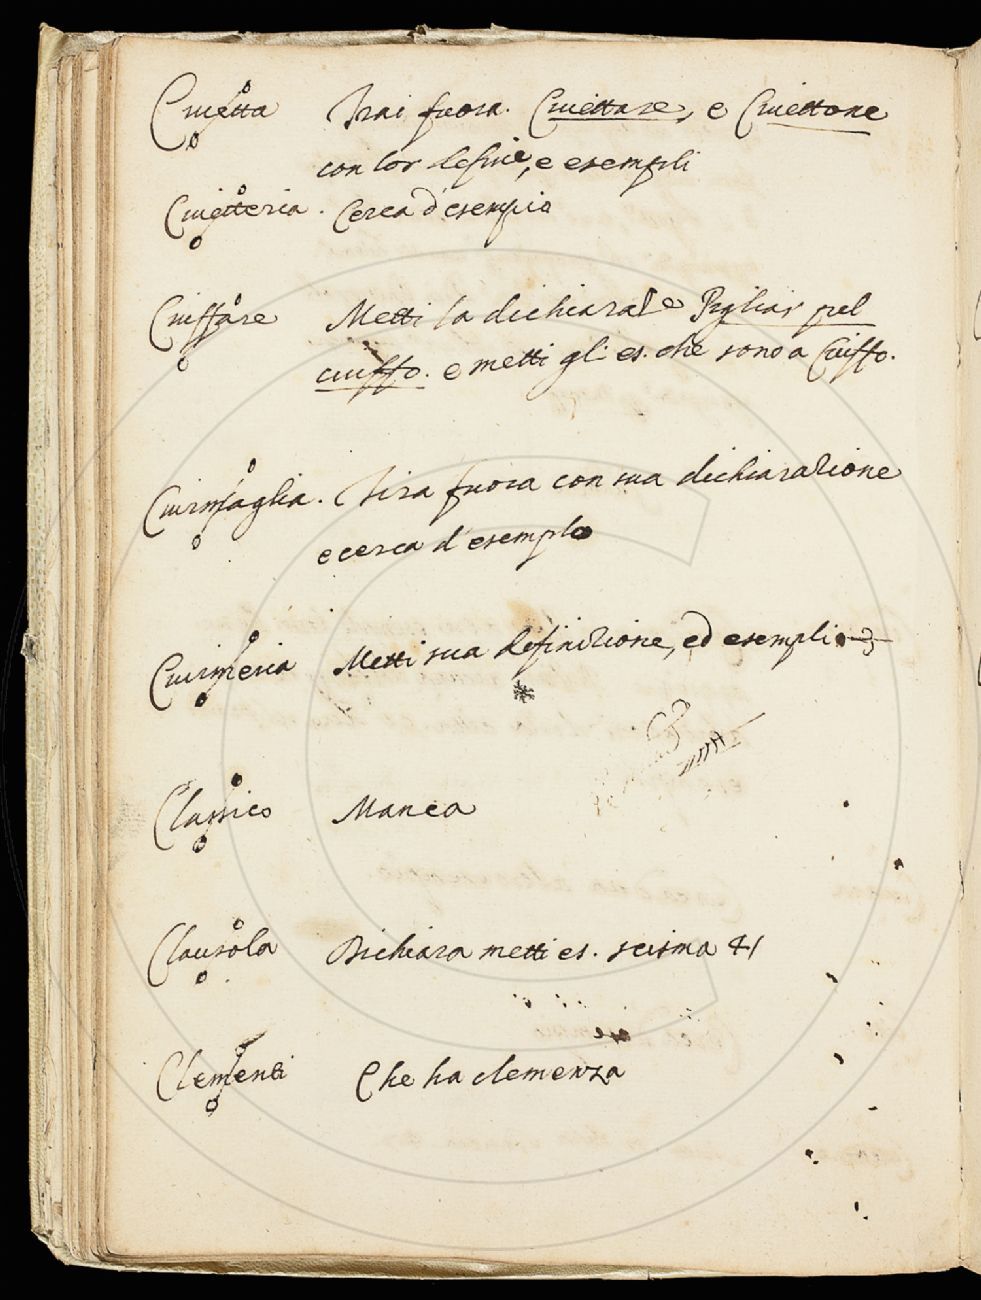 Ciuetta Trai fuora. Ciuettare, e Ciuettone
con lor defini, e esempli
Ciuetteria. Cerca d'esempio
Ciuffare Metti la dichiaraz e Pigliar pel
ciuffo. e metti gli es. che sono a Ciuffo.
Ciurmaglia. Tira fuora con sua dichiarazione
e cerca d'esemplo
Ciurmeria Metti sua definizione, ed esempli
Classico Manca
Clausola Dichiara metti es. scisma 41
Clemente Che ha clemenza